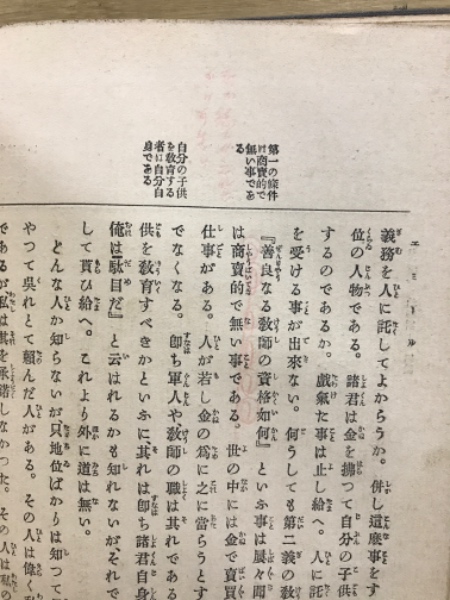 エミール
第一の條件
は商賣的で
無い事であ
る
自分の子供
を敎育する
者は自分自
身である
義務を人に託してよからうか。併し這麽事をす
位の人物である。諸君は金を拂つて自分の子供
するのであるか。戲氣た事は止し給へ。人に託
を受ける事が出來ない。何うしても第二義の敎
『善良なる敎師の資格如何』といふ事は屢々
は商賣的で無い事である。世の中には金で賣買
仕事がある。人が若し金の爲に之に當らうとす
でなくなる。卽ち軍人や、敎師の職は其れである
供を敎育すべきかといふに、其れは卽ち諸君自身
俺は『駄目だ』と云はれるかも知れないが、それで
して貰ひ給へ。これより外に道は無い。
どんな人か知らないが只地位ばかりは知つて
やつて吳れとて賴んだ人がある。その人は偉く
であるが私は其を承諾しなかつた。その人は私の